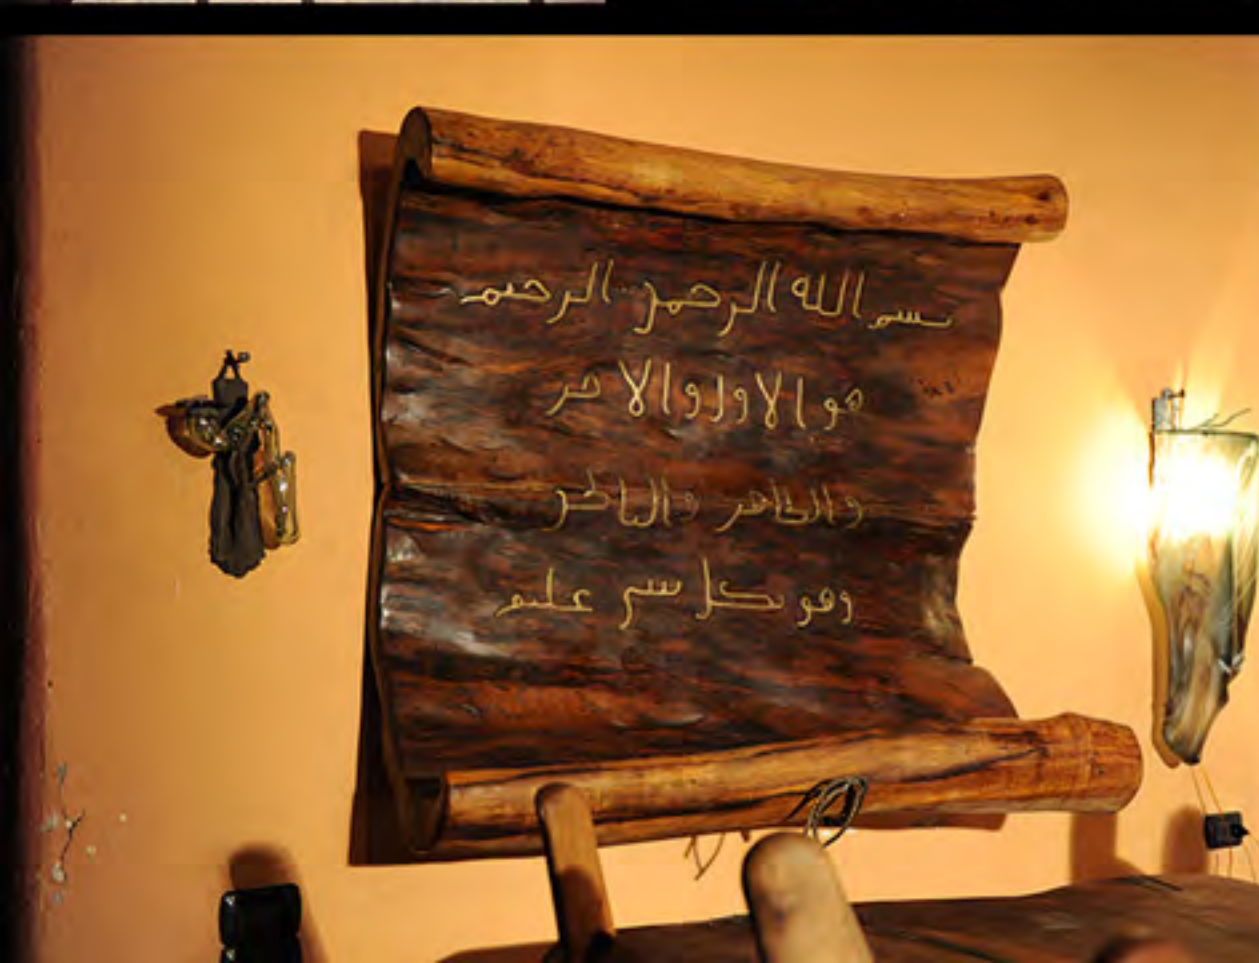 بسم الله الرحمن الرحيم
هو الاول والاخر
والظاهر والباطن
وهو بكل شي عليم